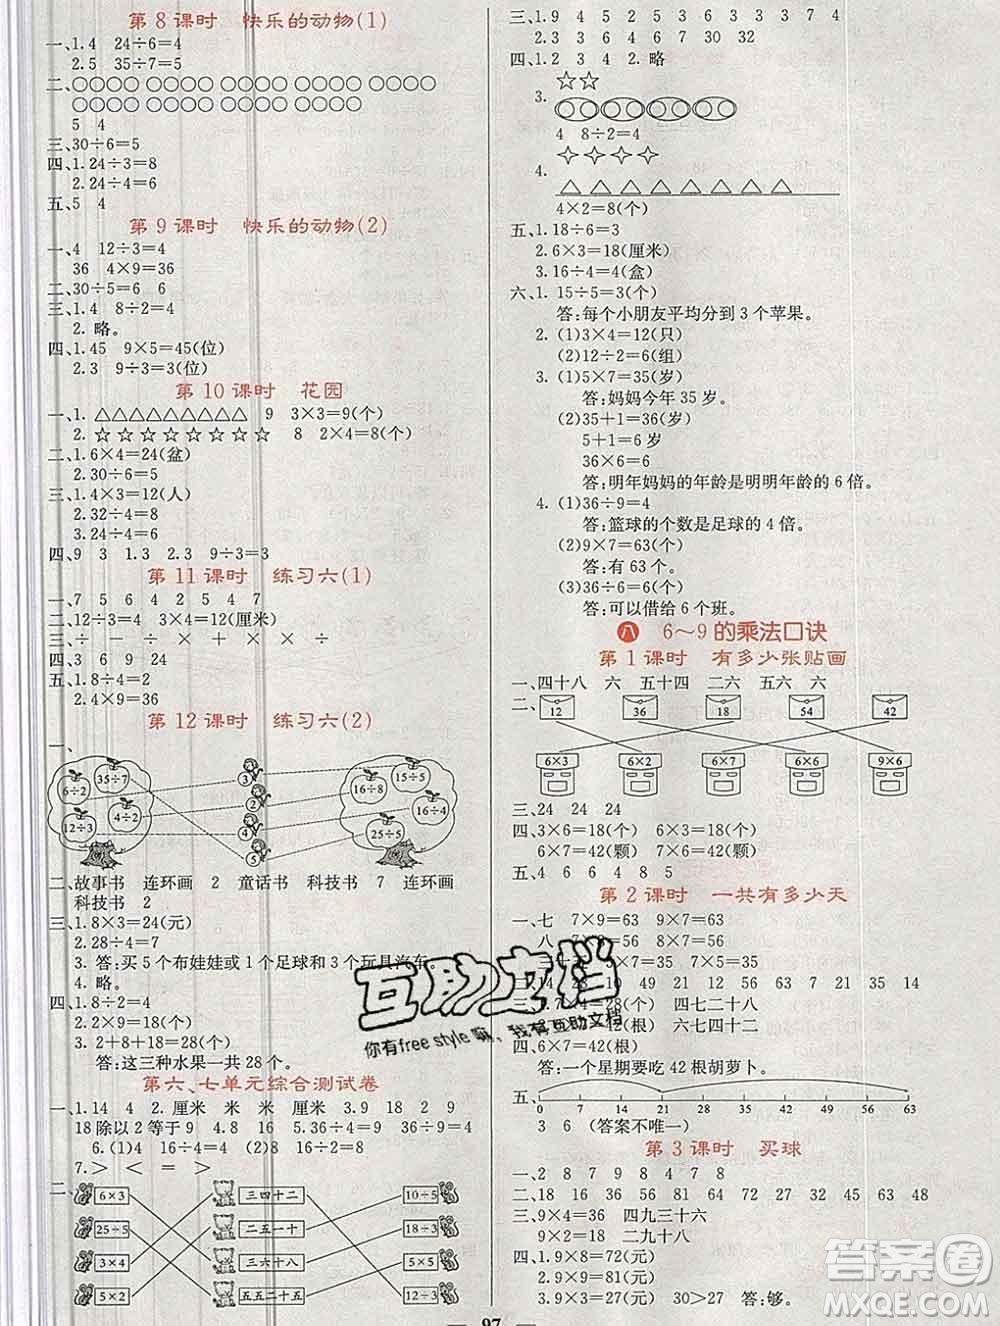 第8课时 快乐的动物(1)
一、1.4 24÷6=4
2.5 35÷7=5
二、○○○○○○○ ○○○○○○○ ○○○○○○○
○○○○○○○ ○○○○○○○
5 4
三、30÷6=5
四、1.24÷3=8
2.24÷4=6
五、5 4
第9课时 快乐的动物(2)
一、4 12÷3=4
36 4×9=36
二、30÷5=6 6
三、1.4 8÷2=4
2.略。
四、1.45 9×5=45(位)
2.3 9÷3=3(位)
第10课时 花园
一、1.△△△△△△△△△ 9 3×3=9(个)
2.☆☆☆☆☆☆☆☆ 8 2×4=8(个)
二、1.6×4=24(盆)
2.30÷6=5
三、1.4×3=12(人)
2.32÷4=8
3.24÷6=4
四、9 3 1.3 2.3 9÷3=3
第11课时 练习六(1)
一、7 5 6 4 2 5 4 7
二、12÷3=4 3×4=12(厘米)
三、÷ ÷ - × + × ×
四、3 6 9 24
五、1.8÷4=2
2.4×9=36
第12课时 练习六(2)
一、
35÷7 6÷2 4÷2 12÷3
3 2 4 5
15÷5 16÷8 16÷4 25÷5
二、故事书 连环画 2 童话书 科技书 7 连环画
科技书 2
三、1.8×3=24(元)
2.28÷4=7
3.答:买5个布娃娃或1个足球和3个玩具汽车
4.略。
四、1.8÷2=4
2.2×9=18(个)
3.2+8+18=28(个)
答:这三种水果一共28个。
第六、七单元综合测试卷
一、1.14 4 2.厘米 米 米 厘米 3.9 24 9
18除以2等于9 4.8 16 5.36÷9=4 36÷4=9
6.(1)4 16÷4=4 (2)8 16÷2=8
7.> < = >
二、
6×3 三四十二 10÷5
25÷5 二五一十 18÷3
3×4 三六十八 5×5
5×2 五五二十五 12÷3
三、1 2 5 9 1 3 3 9 3 7 4
2.3 2 3 6 7 30 32
四、1.2 3 4 2.略
☆☆
3.
○○ ○○ ○○ ○○
4 8÷2=4
4.
△△△△△△△△
4×2=8(个)
五、1.18÷6=3
2.6×3=18(厘米)
3.16÷4=4(盒)
六、1.15÷5=3(个)
答:每个小朋友平均分到3个苹果。
2.(1)3×4=12(只)
(2)12÷2=6(组)
3.(1)5×7=35(岁)
答:妈妈今年35岁。
(2)35+1=36(岁)
5+1=6岁
36×6=6
答:明年妈妈的年龄是明明年龄的6倍。
4.(1)36÷9=4
答:篮球的个数是足球的4倍。
(2)9×7=63(个)
答:有63个。
(3)36÷6=6(个)
答:可以借给6个班。
八 6~9的乘法口诀
第1课时 有多少张贴画
一、四十八 六 五十四 二六 五六 六
二、
12 36 18 54 42
6×3 6×2 6×7 6×6 9×6
三、24 24 24
四、3×6=18(个) 6×3=18(个)
6×7=42(颗) 7×6=42(颗)
五、4 6 6 4 8 5
第2课时 一共有多少天
一、七 7×9=63 9×7=63
八 7×8=56 8×7=56
三、
28(个) 四七二十八
六七四十二
四、6×7=42(根)
答:一个星期要吃42根胡萝卜。
五、
0 7 14 21 28 35 42 49 56 63
3 6 (答案不唯一)
第3课时 买球
一、2 8 7 9 8 4 8 7 9
二、18 16 36 56 81 64 72 27 32 45 63 48
三、9×4=36 四九三十六
9×2=18 二九十八
四、1.9×8=72(元)
2.9×9=81(元)
3.9×3=27(元) 30>27 答:够。
互助文档
你有free style嘛,我有互助文档
答案圈
MXQE.COM
97